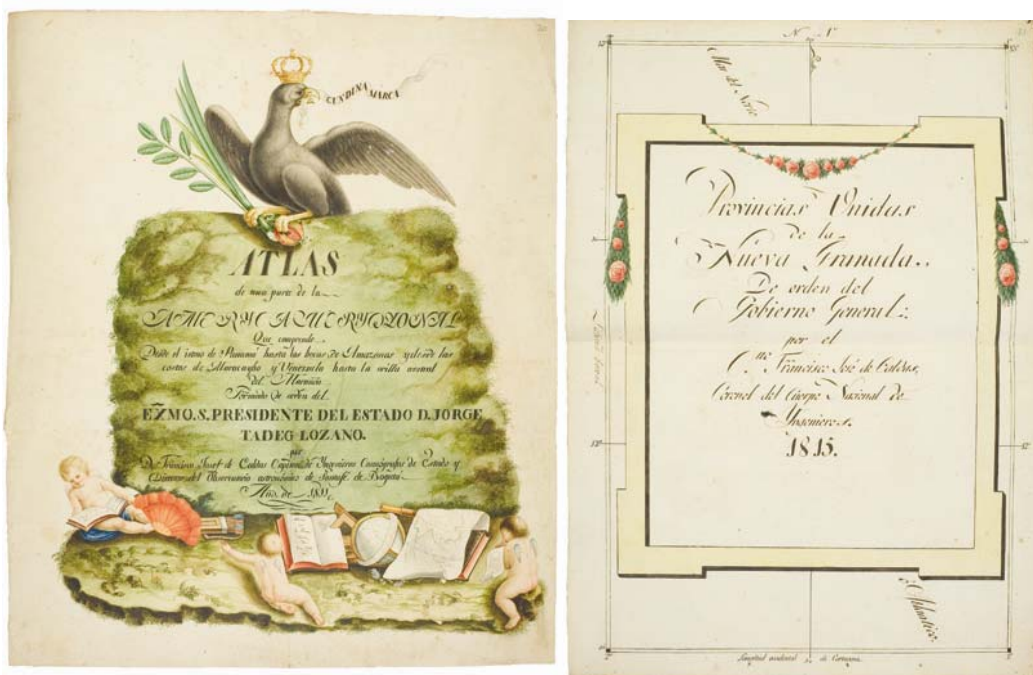 CUNDINA MARCA
ATLAS
de una parte de la
AMERICA MERIDIONAL
Que comprende
Desde el istmo de Panamá hasta las bocas de Amazonas y desde las
costas de Maracaybo y Venezuela hasta la orilla austral
del Marañon
Formado de orden del
EXMO. S. PRESIDENTE DEL ESTADO D. JORGE
TADEO LOZANO.
por
D. Francisco José de Caldas Capitan de Yngenieros Cosmógrafo de Estado y
Director del Observatorio astronómico de Santafe de Bogotá
Año de 1811
N
Mar del Norte
Provincias Unidas
de la
Nueva Granada.
De orden del
Gobierno General:
por el
C.no Francisco José de Caldas,
Coronel del Cuerpo Nacional de
Yngenieros.
1815.
Atlantico.
Longitud occidental de Cartagena.